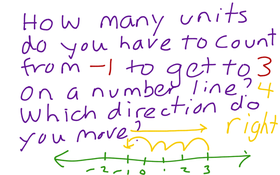 How many units
do you have to count
from -1 to get to 3
on a number line? 4
Which direction do
you move? right
-2 -1 0 1 2 3